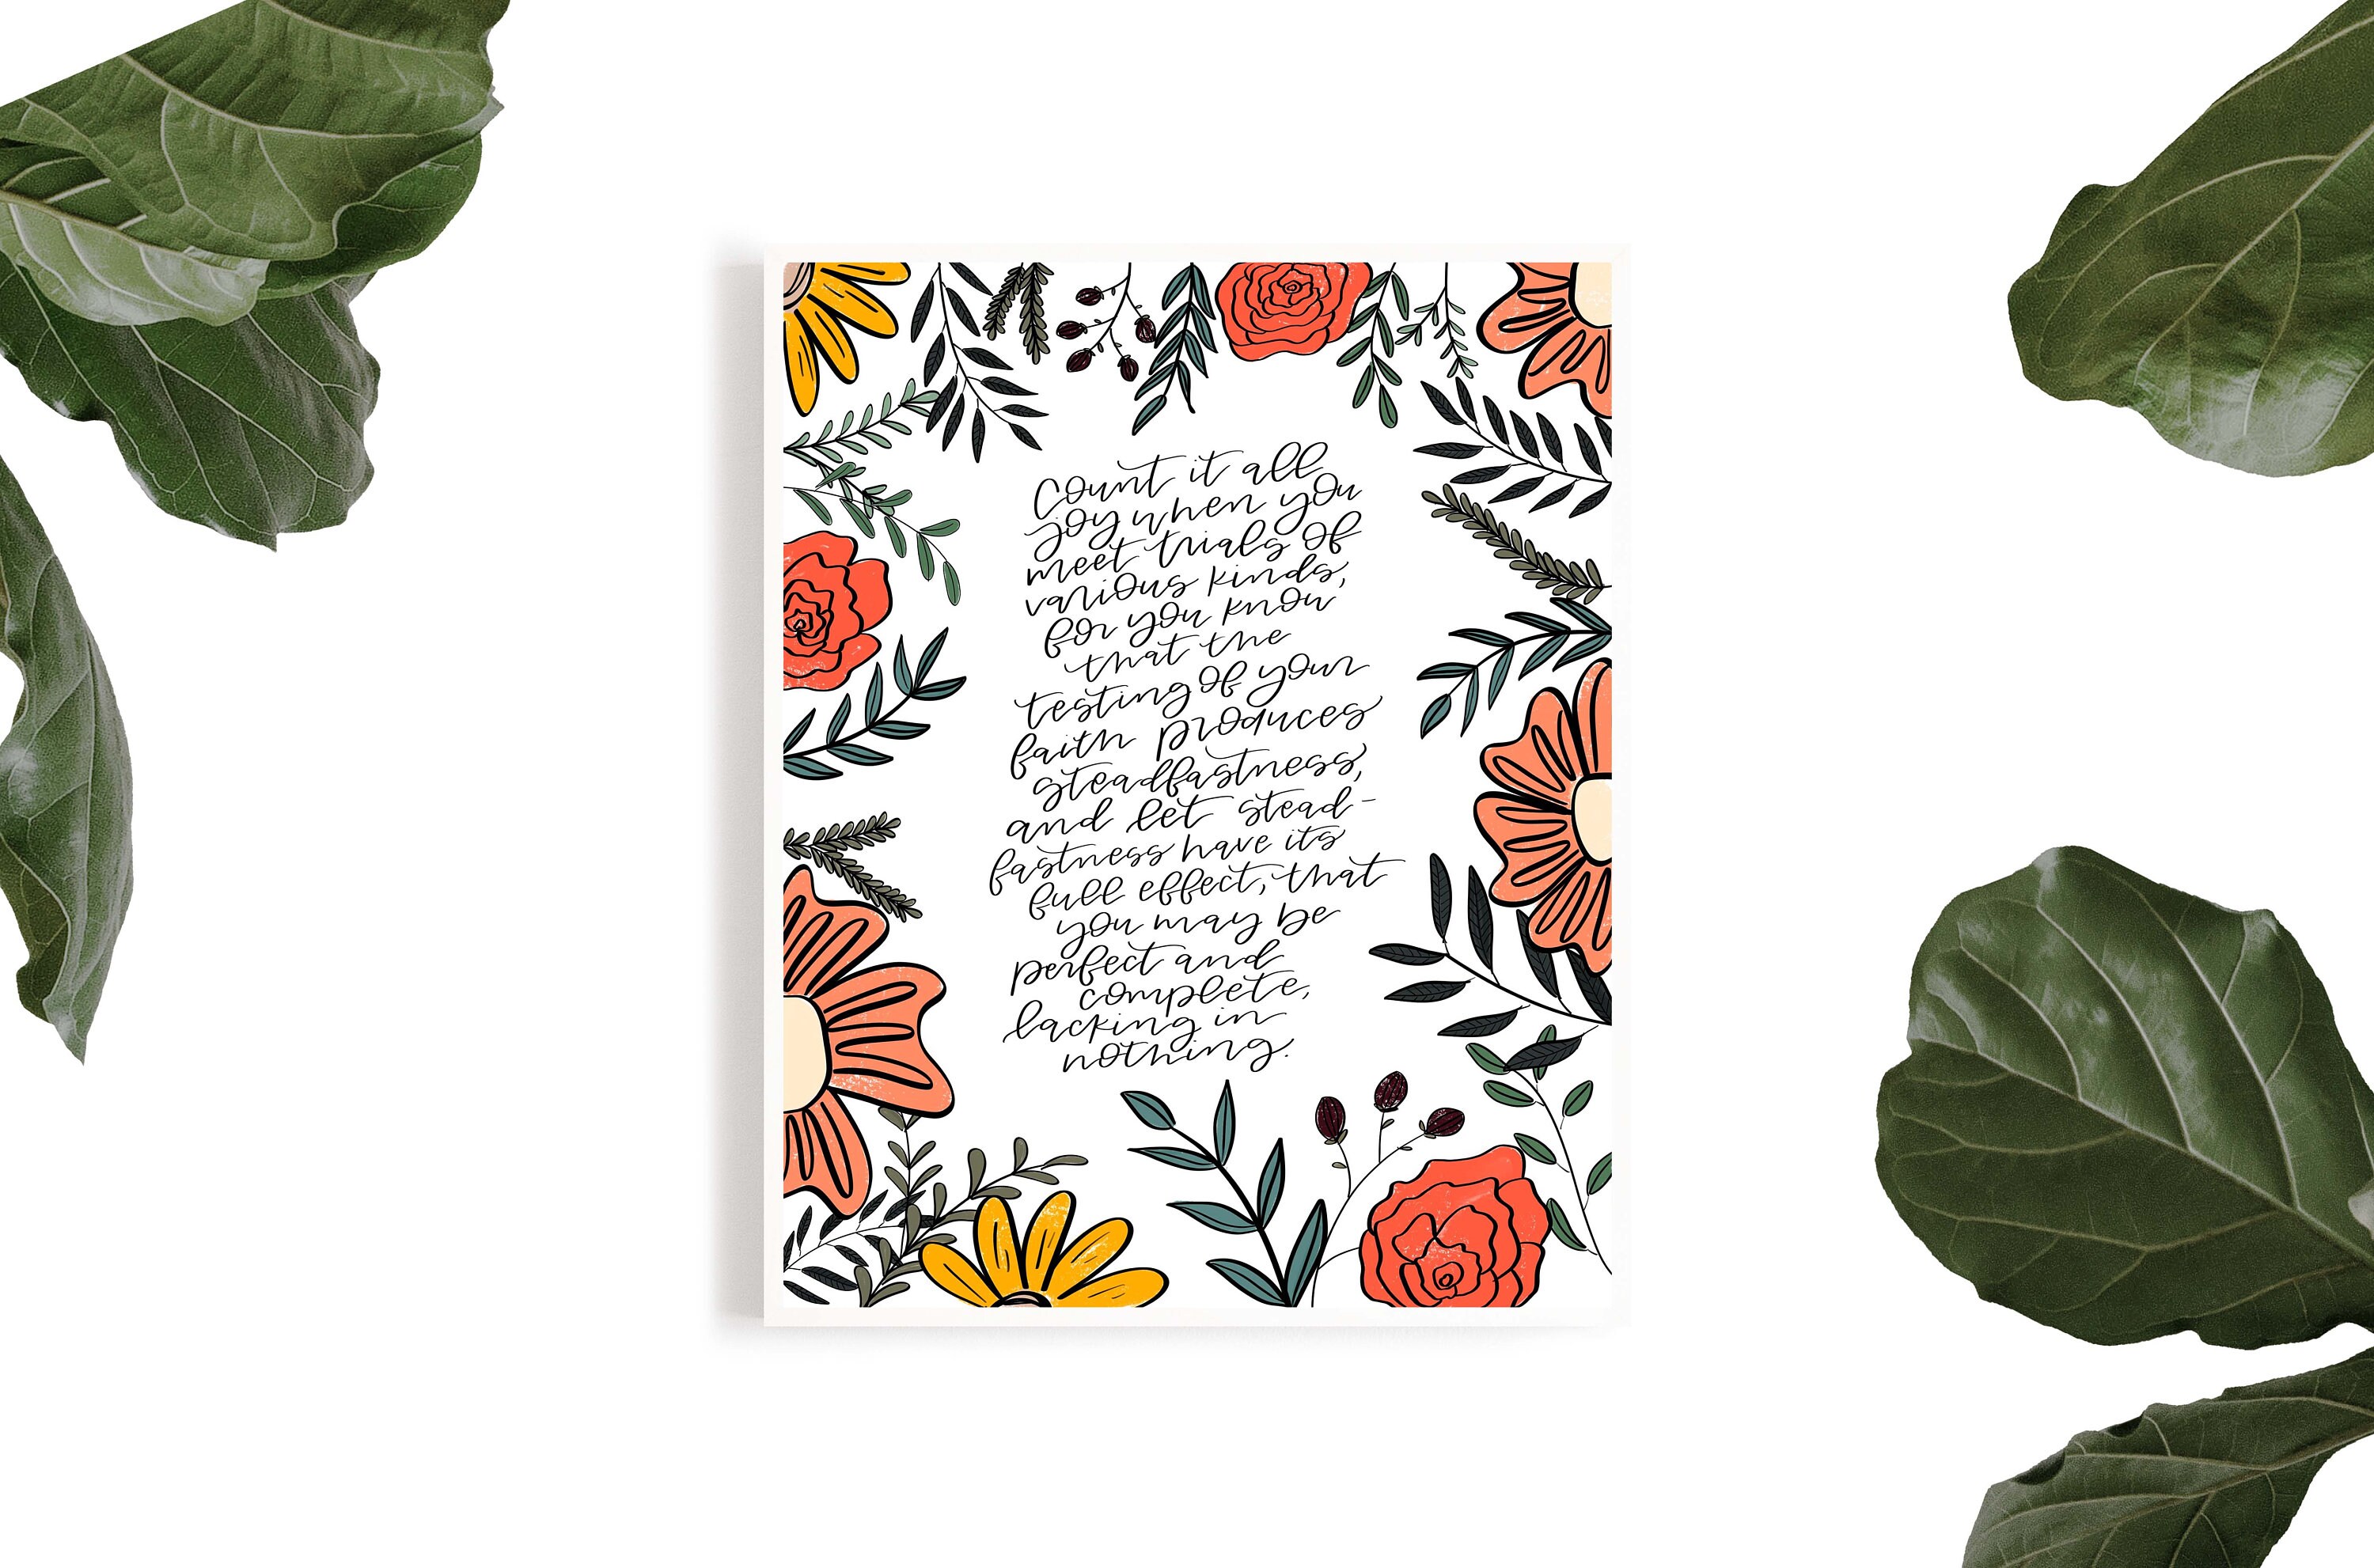 Count it all
joy when you
meet trials of
various kinds,
for you know
that the
testing of your
faith produces
steadfastness,
and let stead-
fastness have its
full effect, that
you may be
perfect and
complete,
lacking in
nothing.